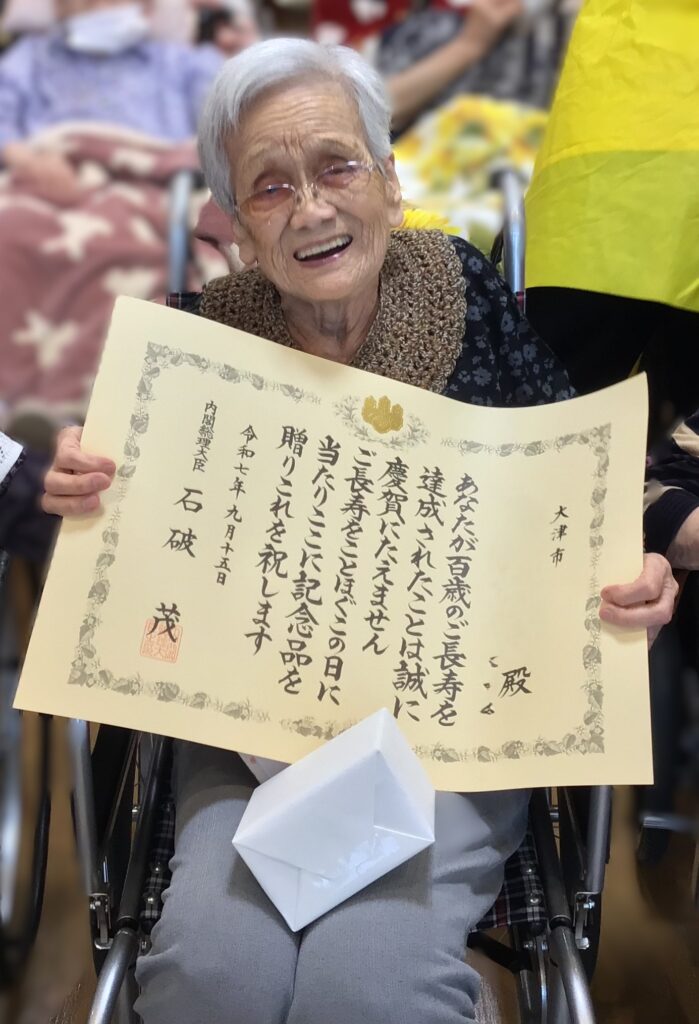 大津市
殿
あなたが百歳のご長寿を
達成されたことは誠に
慶賀にたえません
ご長寿をことほぐこの日に
当たりここに記念品を
贈りこれを祝します
令和七年九月十五日
内閣総理大臣 石破 茂